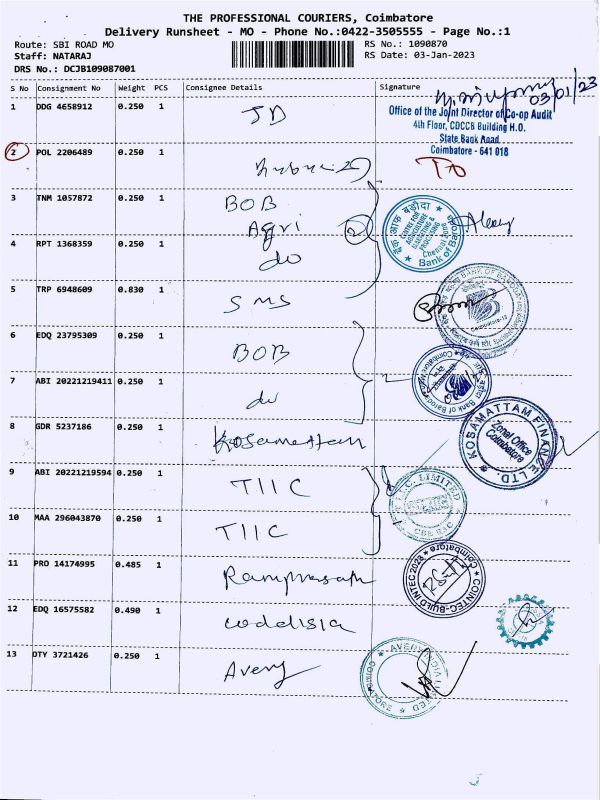 THE PROFESSIONAL COURIERS, Coimbatore
Delivery Runsheet - MO - Phone No.:0422-3505555 - Page No.:1
Route: SBI ROAD MO
RS No.: 1090870
Staff: NATARAJ
RS Date: 03-Jan-2023
DRS No.: DCJB109087001
S No Consignment No Weight PCS Consignee Details Signature
03/01/23
1 DDG 4658912 0.250 1 JD
Office of the Joint Director of Co-op Audit
4th Floor, CDCCB Building H.O.
State Bank Road
Coimbatore - 641 018
2 POL 2206489 0.250 1
3 TNM 1057872 0.250 1 BOB
Agri 2
4 RPT 1368359 0.250 1 do
Bank of Baroda
5 TRP 6948609 0.830 1 SMS
6 EDQ 23795309 0.250 1 BOB
7 ABI 20221219411 0.250 1 do
8 GDR 5237186 0.250 1 Kosamattam
KOSAMATTAM FINANCE LTD.
Zonal Office
Coimbatore
9 ABI 20221219594 0.250 1 TIIC
10 MAA 296043870 0.250 1 TIIC
11 PRO 14174995 0.485 1 Ramprasath
COINTEC-BUILD INTEC 2023
Coimbatore
12 EDQ 16575582 0.490 1 coddisia
13 DTY 3721426 0.250 1 Avery
COIMBATORE